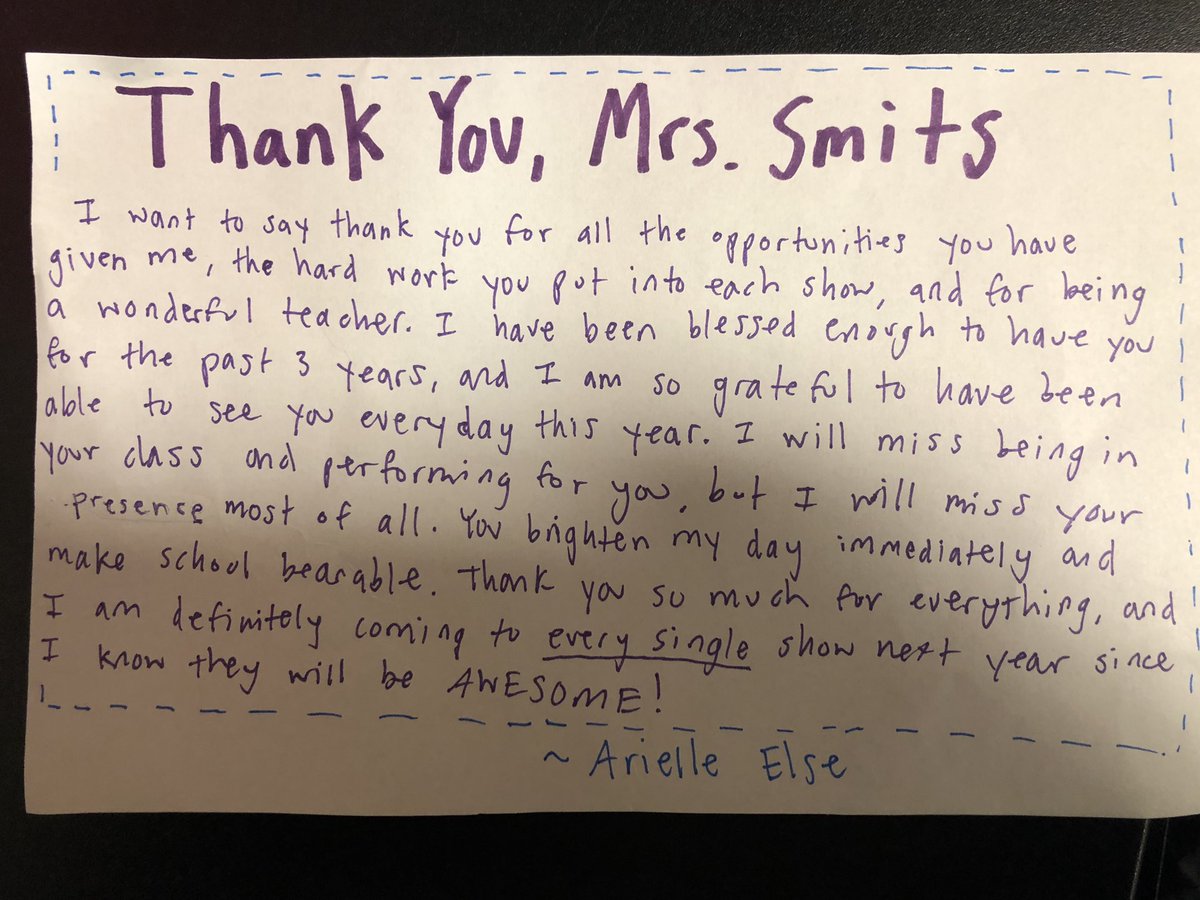 Thank You, Mrs. Smits
I want to say thank you for all the opportunities you have
given me, the hard work you put into each show, and for being
a wonderful teacher. I have been blessed enough to have you
for the past 3 years, and I am so grateful to have been
able to see you everyday this year. I will miss being in
your class and performing for you, but I will miss your
presence most of all. You brighten my day immediately and
make school bearable. Thank you so much for everything, and
I am definitely coming to every single show next year since
I know they will be AWESOME!
~ Arielle Else